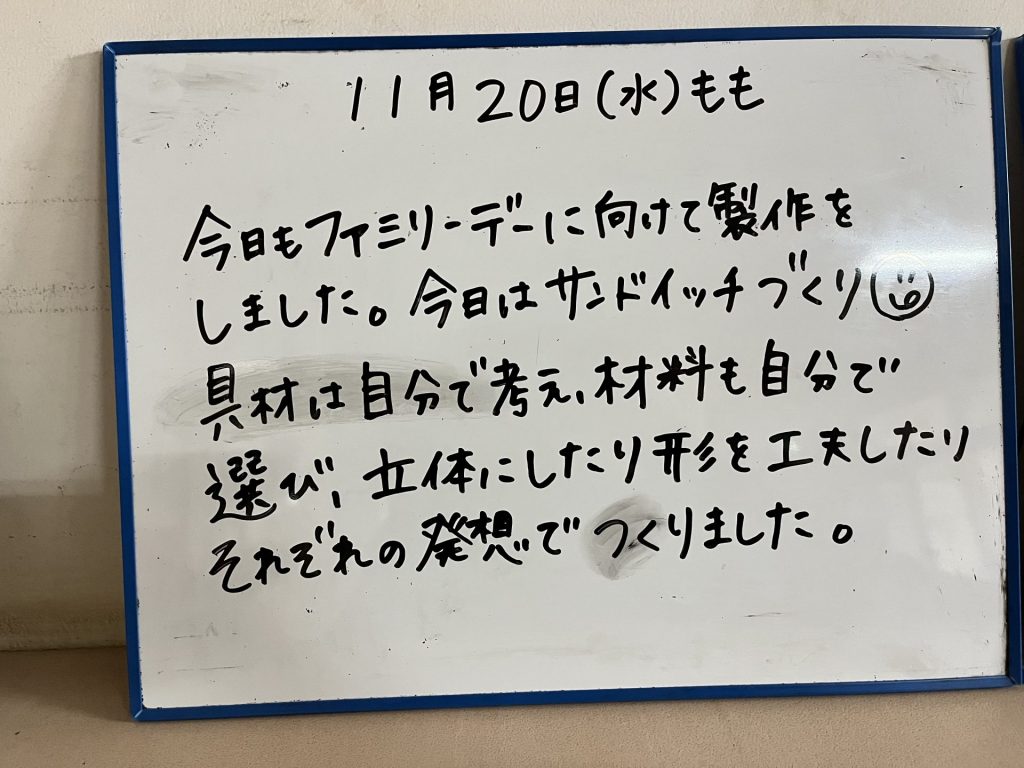 11月20日(水)もも
今日もファミリーデーに向けて製作を
しました。今日はサンドイッチづくり
具材は自分で考え、材料も自分で
選び、立体にしたり形を工夫したり
それぞれの発想でつくりました。